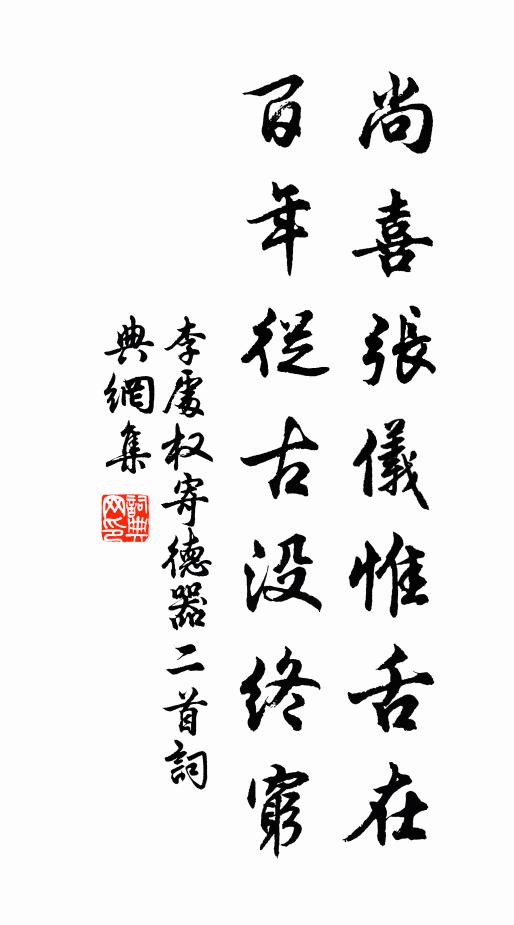 尚喜張儀惟舌在
百年從古没終窮
李處权寄德器二首詞
典網集
詞典网印